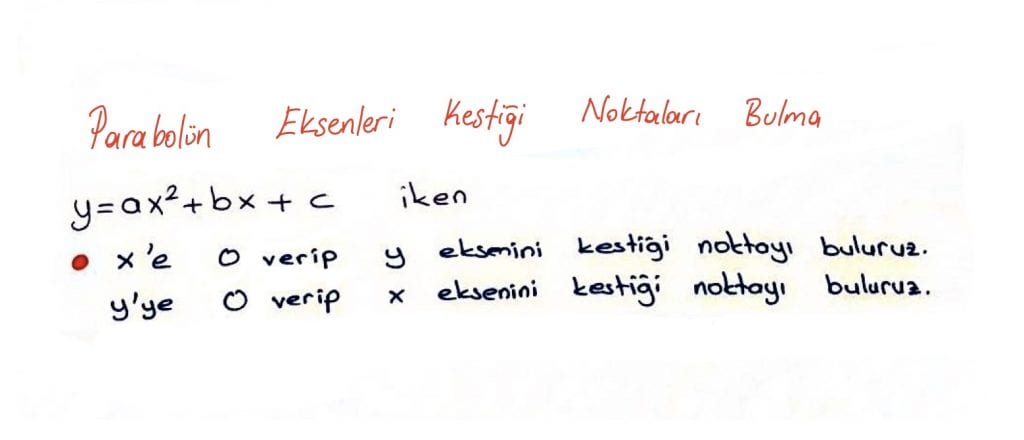 Parabolün Eksenleri Kestiği Noktaları Bulma
y=ax²+bx+c iken
• x'e 0 verip y eksenini kestiği noktayı buluruz.
y'ye 0 verip x eksenini kestiği noktayı buluruz.